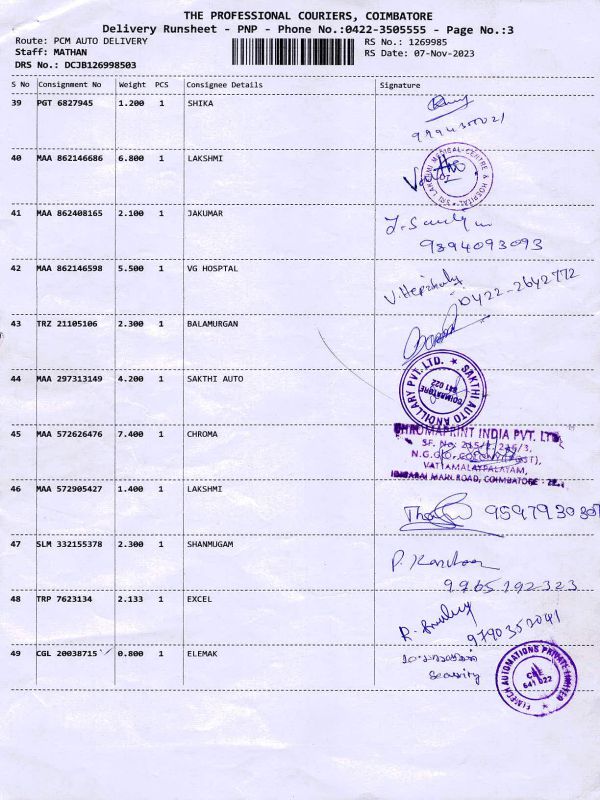 THE PROFESSIONAL COURIERS, COIMBATORE
Delivery Runsheet - PNP - Phone No.:0422-3505555 - Page No.:3
Route: PCM AUTO DELIVERY
RS No.: 1269985
Staff: MATHAN
RS Date: 07-Nov-2023
DRS No.: DCJB126998503
S No Consignment No Weight PCS Consignee Details Signature
39 PGT 6827945 1.200 1 SHIKA
40 MAA 862146686 6.800 1 LAKSHMI
SRI LAKSHMI MEDICAL CENTRE & HOSPITAL
41 MAA 862408165 2.100 1 JAKUMAR
9894093093
42 MAA 862146598 5.500 1 VG HOSPTAL
0422-2642772
43 TRZ 21105106 2.300 1 BALAMURGAN
44 MAA 297313149 4.200 1 SAKTHI AUTO
SAKTHI AUTO ANCILLARY PVT. LTD.
COIMBATORE
641 022
45 MAA 572626476 7.400 1 CHROMA
CHROMAPRINT INDIA PVT. LTD.
S.F. No: 215/2, 216/3,
VATTAMALAYPALAYAM,
MAIN ROAD, COIMBATORE
46 MAA 572905427 1.400 1 LAKSHMI
47 SLM 332155378 2.300 1 SHANMUGAM
9965192323
48 TRP 7623134 2.133 1 EXCEL
9790353041
49 CGL 20038715 0.800 1 ELEMAK
Security
AUTOMATIONS PRIVATE LIMITED
CBE
641 022